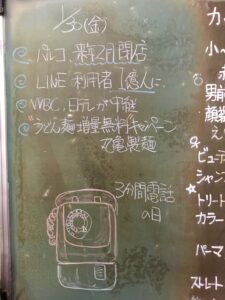 1/30(金)
パルコ、来年2月閉店
LINE 利用者 1億人に
WBC、日テレが中継
"うどん麺増量無料"キャンペーン
丸亀製麺
3分間電話
の日
カ
小
男前
顔
え
ビューテ
シャン
トリート
カラー
パーマ
ストレート